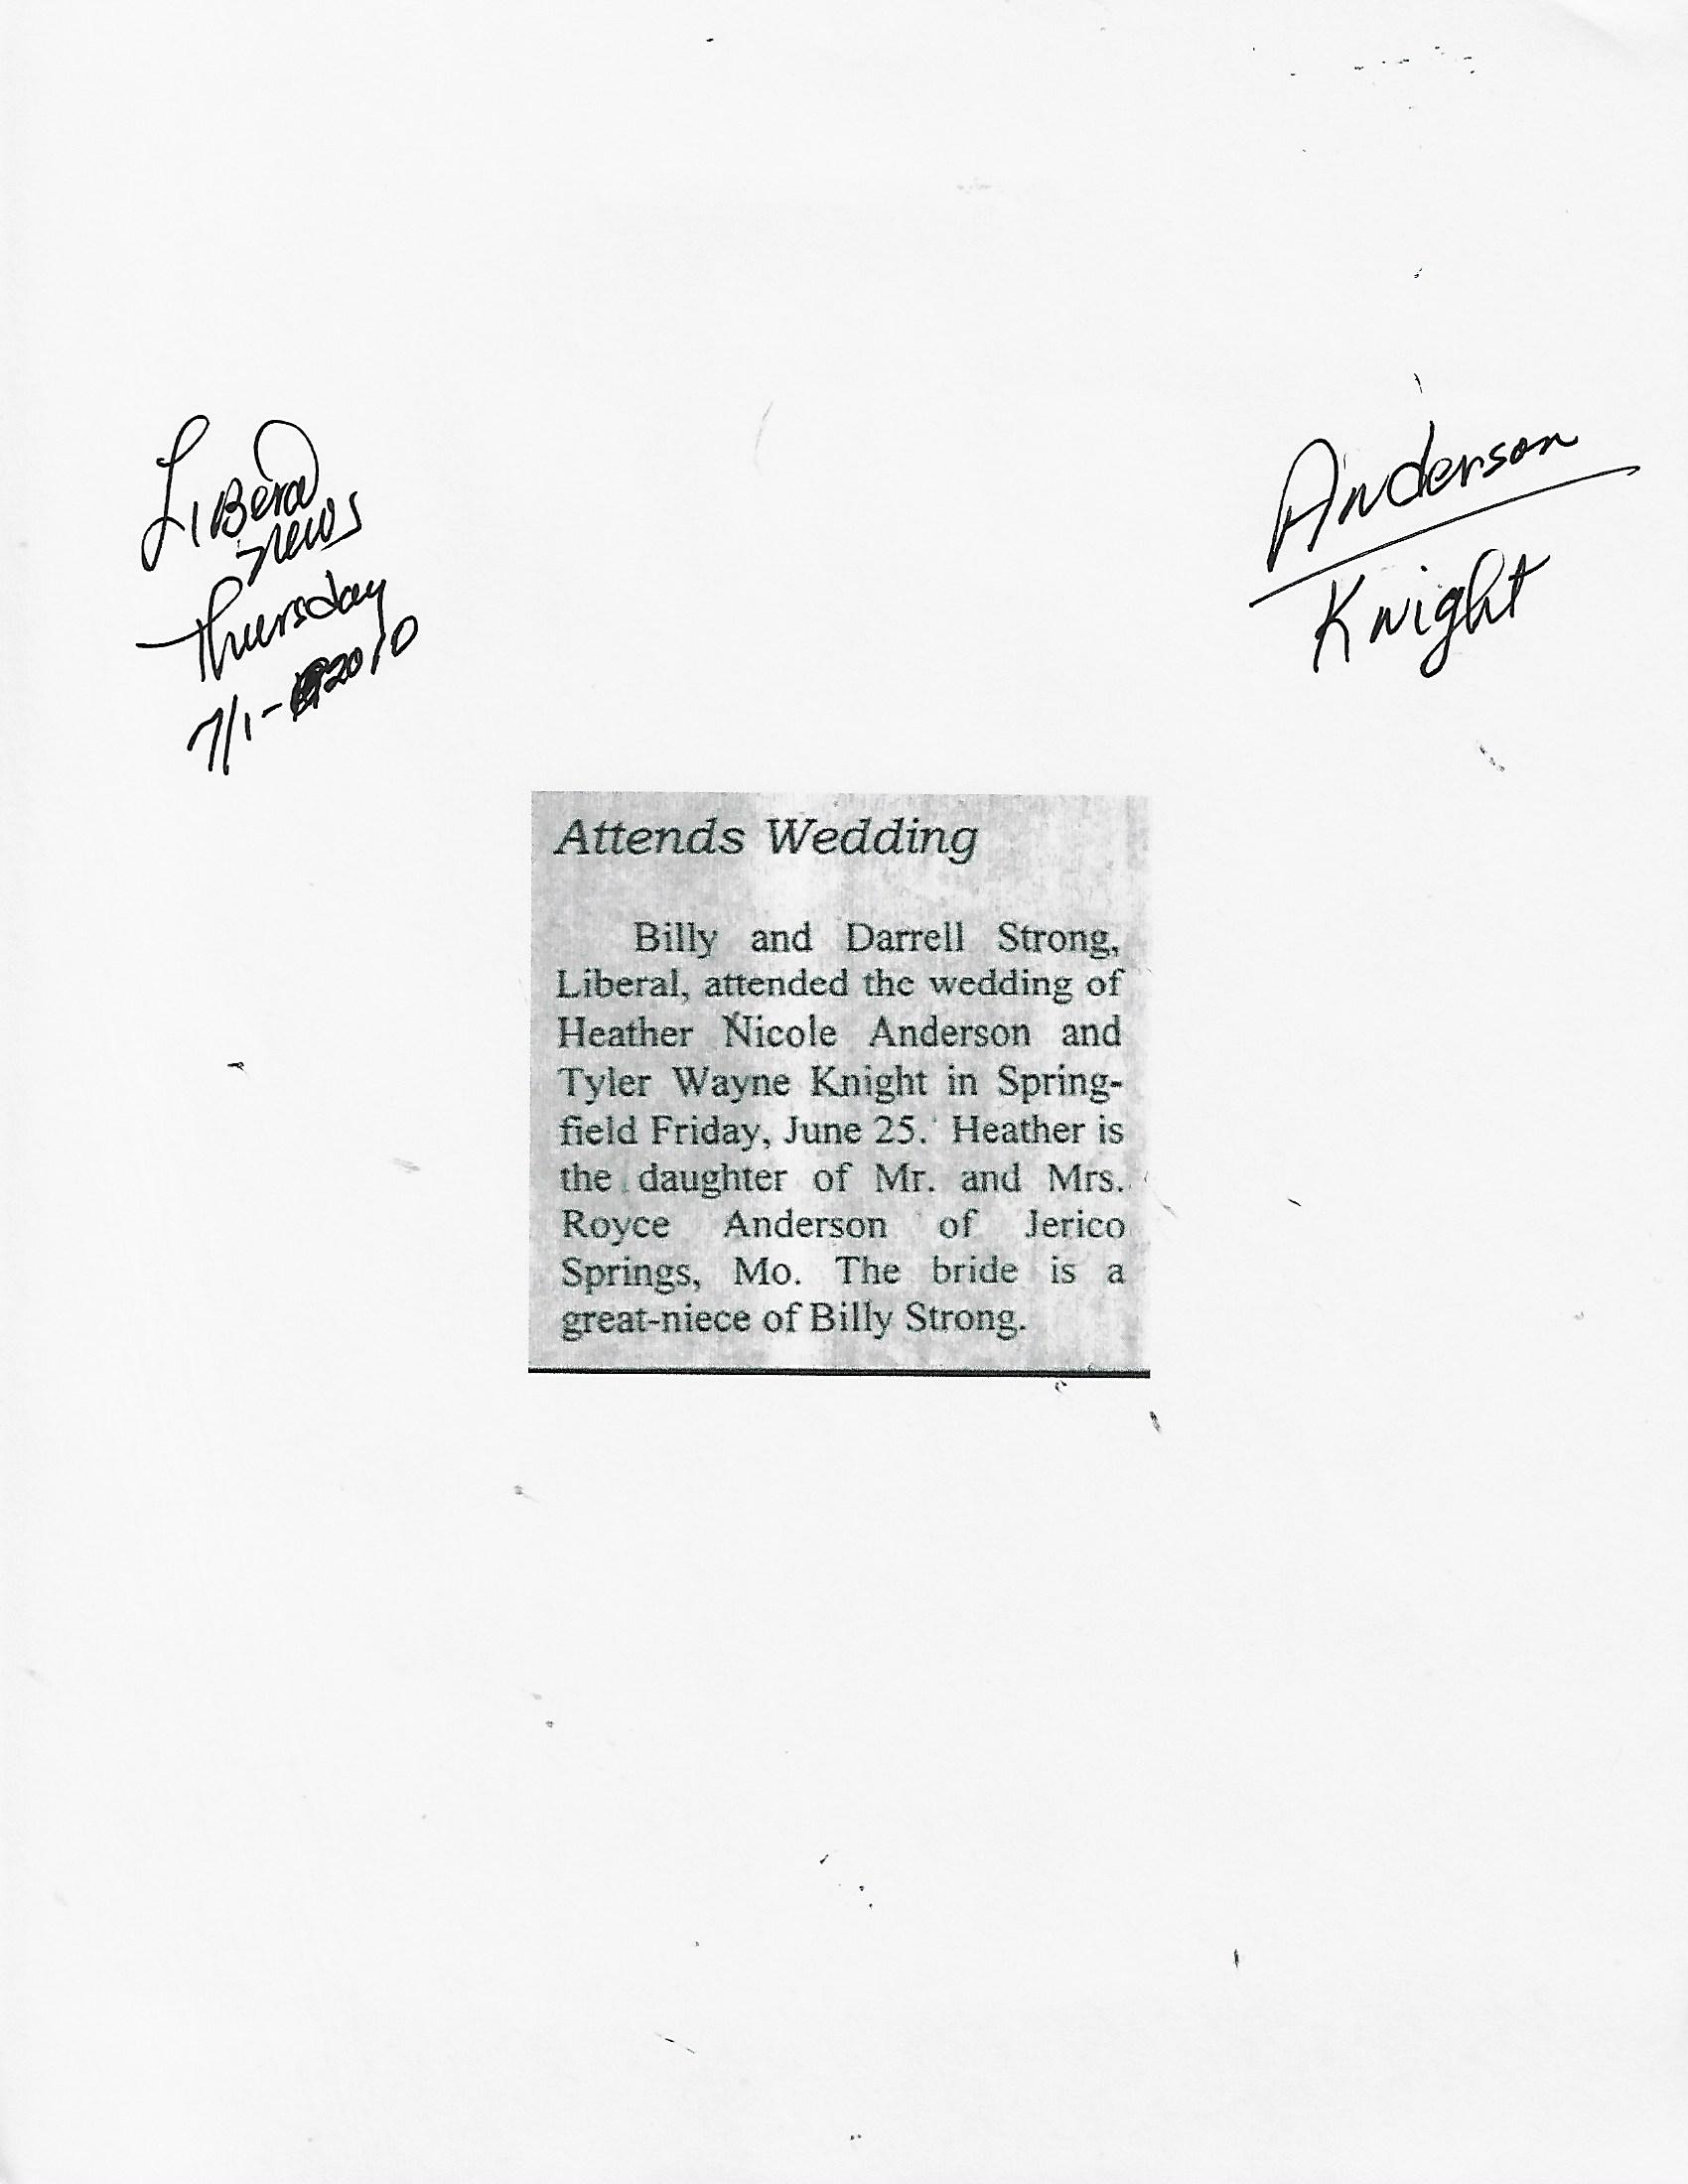 Liberal
News
Thursday
7/1-2010
Anderson
Knight
Attends Wedding
Billy and Darrell Strong,
Liberal, attended the wedding of
Heather Nicole Anderson and
Tyler Wayne Knight in Spring-
field Friday, June 25. Heather is
the daughter of Mr. and Mrs.
Royce Anderson of Jerico
Springs, Mo. The bride is a
great-niece of Billy Strong.